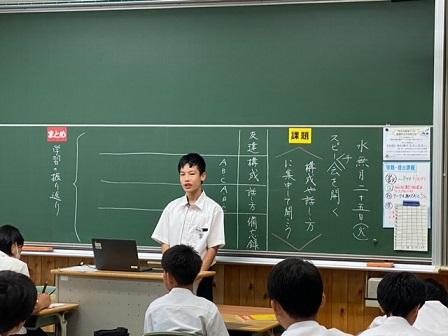 水無月二十五日(火)
スピーチ会を開く
課題
構成や話し方
に集中して聞こう
友達 構成 話し方 備忘録
ABCABC
まとめ
学習の振り返り